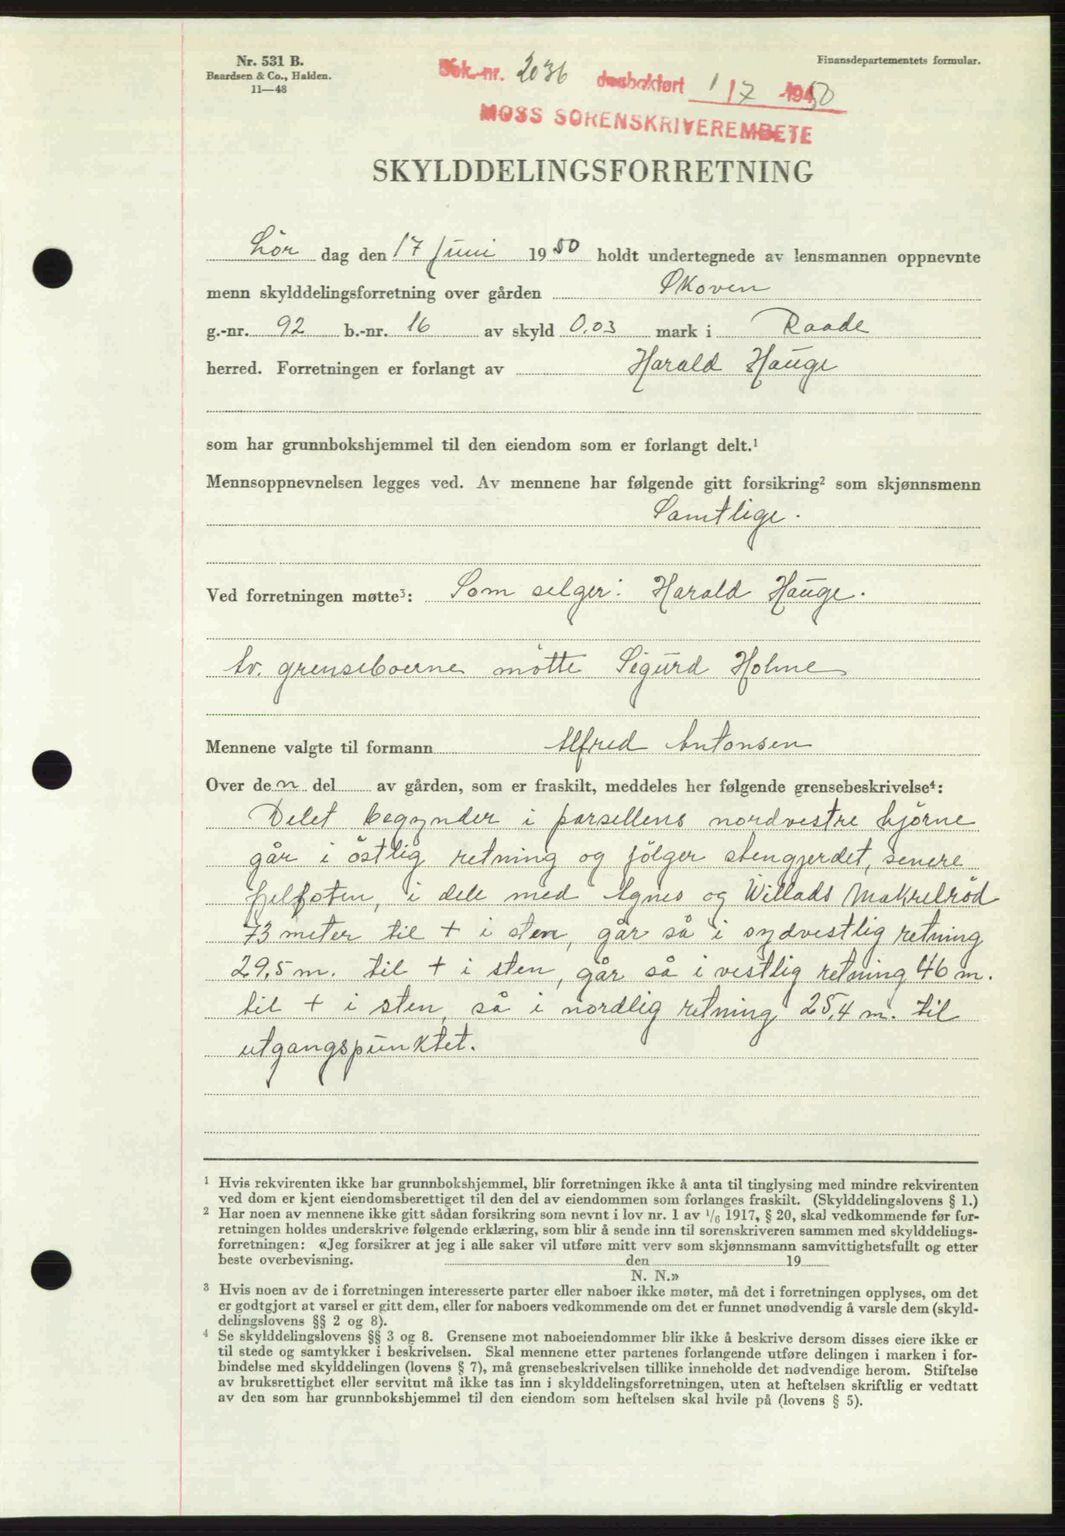 Nr. 531 B.
Baardsen & Co., Halden.
11—48
Finansdepartementets formular.
Dok.nr. 2036 dagbokført 1/7 1950
MOSS SORENSKRIVEREMBETE
SKYLDDELINGSFORRETNING
Lør dag den 17 Juni 1950 holdt undertegnede av lensmannen oppnevnte
menn skylddelingsforretning over gården Økoven
g.-nr. 92 b.-nr. 16 av skyld 0.03 mark i Raade
herred. Forretningen er forlangt av Harald Hauge
som har grunnbokshjemmel til den eiendom som er forlangt delt.¹
Mennsoppnevnelsen legges ved. Av mennene har følgende gitt forsikring² som skjønnsmenn
Samtlige.
Ved forretningen møtte³: Som selger: Harald Hauge.
Av. grenseboerne møtte Sigurd Holme
Mennene valgte til formann Alfred Antonsen
Over den del av gården, som er fraskilt, meddeles her følgende grensebeskrivelse⁴:
Delet begynder i parsellens nordvestre hjørne
går i östlig retning og følger stengjerdet, senere
fjelfoten, i dele med Agnes og Willads Makrelröd
73 meter til + i sten, går så i sydvestlig retning
29,5 m. til + i sten, går så i vestlig retning 46 m.
til + i sten, så i nordlig retning 25,4 m. til
utgangspunktet.
¹ Hvis rekvirenten ikke har grunnbokshjemmel, blir forretningen ikke å anta til tinglysing med mindre rekvirenten
ved dom er kjent eiendomsberettiget til den del av eiendommen som forlanges fraskilt. (Skylddelingslovens § 1.)
² Har noen av mennene ikke gitt sådan forsikring som nevnt i lov nr. 1 av 1/6 1917, § 20, skal vedkommende før for-
retningen holdes underskrive følgende erklæring, som blir å sende inn til sorenskriveren sammen med skylddelings-
forretningen: «Jeg forsikrer at jeg i alle saker vil utføre mitt verv som skjønnsmann samvittighetsfullt og etter
beste overbevisning. den 19
N. N.»
³ Hvis noen av de i forretningen interesserte parter eller naboer ikke møter, må det i forretningen opplyses, om det
er godtgjort at varsel er gitt dem, eller for naboers vedkommende om det er funnet unødvendig å varsle dem (skyld-
delingslovens §§ 2 og 8).
⁴ Se skylddelingslovens §§ 3 og 8. Grensene mot naboeiendommer blir ikke å beskrive dersom disses eiere ikke er
til stede og samtykker i beskrivelsen. Skal mennene etter partenes forlangende utføre delingen i marken i for-
bindelse med skylddelingen (lovens § 7), må grensebeskrivelsen tillike inneholde det nødvendige herom. Stiftelse
av bruksrettighet eller servitut må ikke tas inn i skylddelingsforretningen, uten at heftelsen skriftlig er vedtatt
av den som har grunnbokshjemmel til den eiendom som heftelsen skal hvile på (lovens § 5).